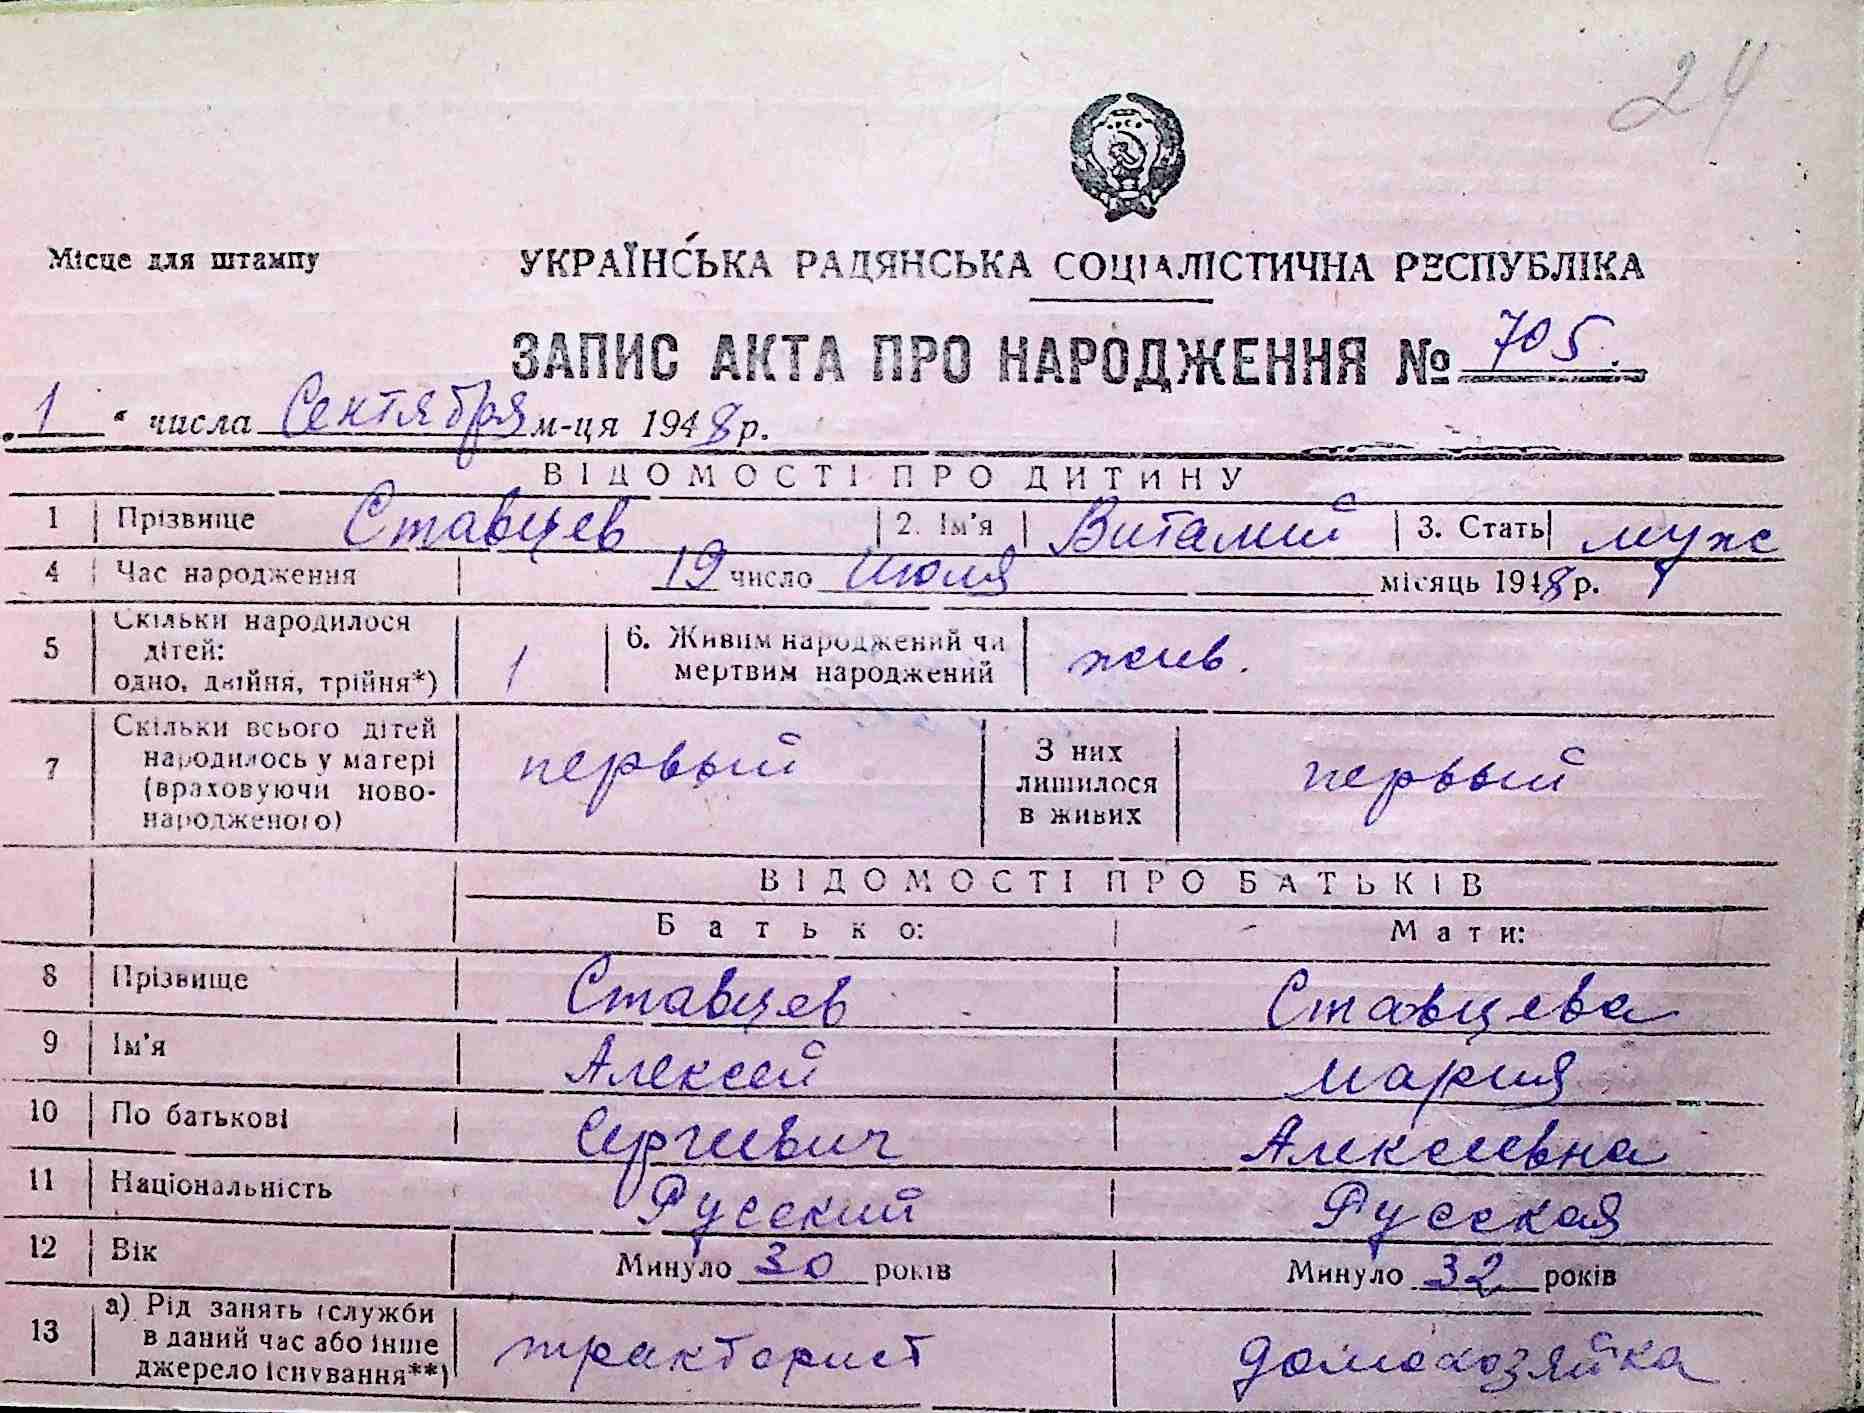 24
Місце для штампу
УКРАЇНСЬКА РАДЯНСЬКА СОЦІАЛІСТИЧНА РЕСПУБЛІКА
ЗАПИС АКТА ПРО НАРОДЖЕННЯ № 705.
„1“ числа Сентября м-ця 1948 р.
ВІДОМОСТІ ПРО ДИТИНУ
1 Прізвище Ставцев 2. Ім'я Виталий 3. Стать муж
4 Час народження 19 число июля місяць 1948 р.
5 Скільки народилося дітей: одно, двійня, трійня*) 1 6. Живим народжений чи мертвим народжений жив.
7 Скільки всього дітей народилось у матері (враховуючи новонародженого) первый З них лишилося в живих первый
ВІДОМОСТІ ПРО БАТЬКІВ
Батько: Мати:
8 Прізвище Ставцев Ставцева
9 Ім'я Алексей Мария
10 По батькові Сергеевич Алексеевна
11 Національність Русский Русская
12 Вік Минуло 30 років Минуло 32 років
13 а) Рід занять (служби в даний час або інше джерело існування**) тракторист домохозяйка